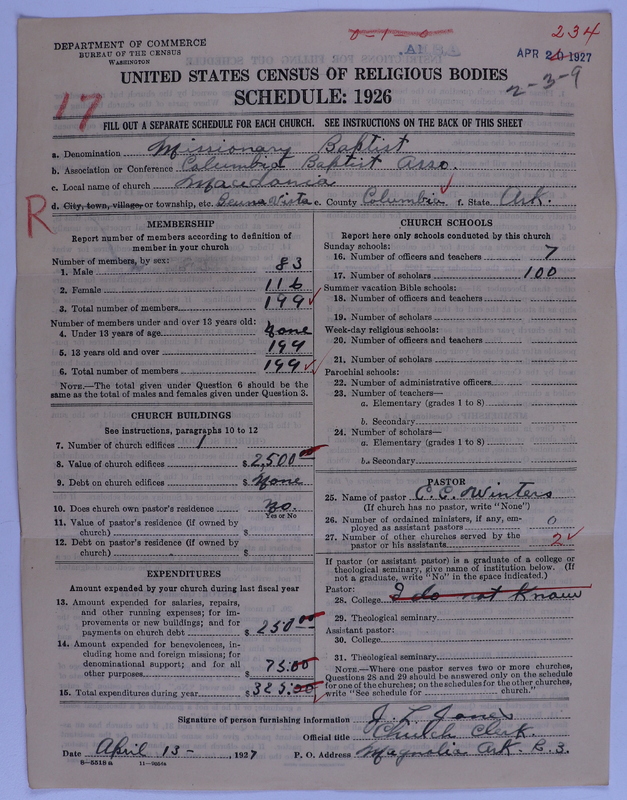 234
0-1-0
DEPARTMENT OF COMMERCE
BUREAU OF THE CENSUS
WASHINGTON
APR 20 1927
2-3-9
UNITED STATES CENSUS OF RELIGIOUS BODIES
SCHEDULE: 1926
17
FILL OUT A SEPARATE SCHEDULE FOR EACH CHURCH. SEE INSTRUCTIONS ON THE BACK OF THIS SHEET
a. Denomination Missionary Baptist
b. Association or Conference Columbia Baptist Asso.
c. Local name of church Macedonia
R
d. City, town, village, or township, etc. Beuna Vista e. County Columbia f. State Ark.
MEMBERSHIP
Report number of members according to definition of
member in your church
Number of members, by sex:
1. Male 83
2. Female 116
3. Total number of members 199
Number of members under and over 13 years old:
4. Under 13 years of age None
5. 13 years old and over 199
6. Total number of members 199
NOTE.—The total given under Question 6 should be the
same as the total of males and females given under Question 3.
CHURCH BUILDINGS
See instructions, paragraphs 10 to 12
7. Number of church edifices 1
8. Value of church edifices $2,500.00
9. Debt on church edifices $None
10. Does church own pastor's residence No.
Yes or No
11. Value of pastor's residence (if owned by
church) $
12. Debt on pastor's residence (if owned by
church) $
EXPENDITURES
Amount expended by your church during last fiscal year
13. Amount expended for salaries, repairs,
and other running expenses; for im-
provements or new buildings; and for
payments on church debt $250.00
14. Amount expended for benevolences, in-
cluding home and foreign missions; for
denominational support; and for all
other purposes $75.00
15. Total expenditures during year $325.00
CHURCH SCHOOLS
Report here only schools conducted by this church
Sunday schools:
16. Number of officers and teachers 7
17. Number of scholars 100
Summer vacation Bible schools:
18. Number of officers and teachers
19. Number of scholars
Week-day religious schools:
20. Number of officers and teachers
21. Number of scholars
Parochial schools:
22. Number of administrative officers
23. Number of teachers—
a. Elementary (grades 1 to 8)
b. Secondary
24. Number of scholars—
a. Elementary (grades 1 to 8)
b. Secondary
PASTOR
25. Name of pastor C. C. Winters
(If church has no pastor, write "None")
26. Number of ordained ministers, if any, em-
ployed as assistant pastors 0
27. Number of other churches served by the
pastor or his assistants 2
If pastor (or assistant pastor) is a graduate of a college or
theological seminary, give name of institution below. (If
not a graduate, write "No" in the space indicated.)
Pastor:
28. College I do not Know
29. Theological seminary
Assistant pastor:
30. College
31. Theological seminary
NOTE.—Where one pastor serves two or more churches,
Questions 28 and 29 should be answered only on the schedule
for one of the churches; on the schedules for the other churches,
write "See schedule for church."
Signature of person furnishing information J. L. Jones
Official title Church Clerk.
Date April 13- , 1927 P. O. Address Magnolia Ark. R. 3.
8-5518a